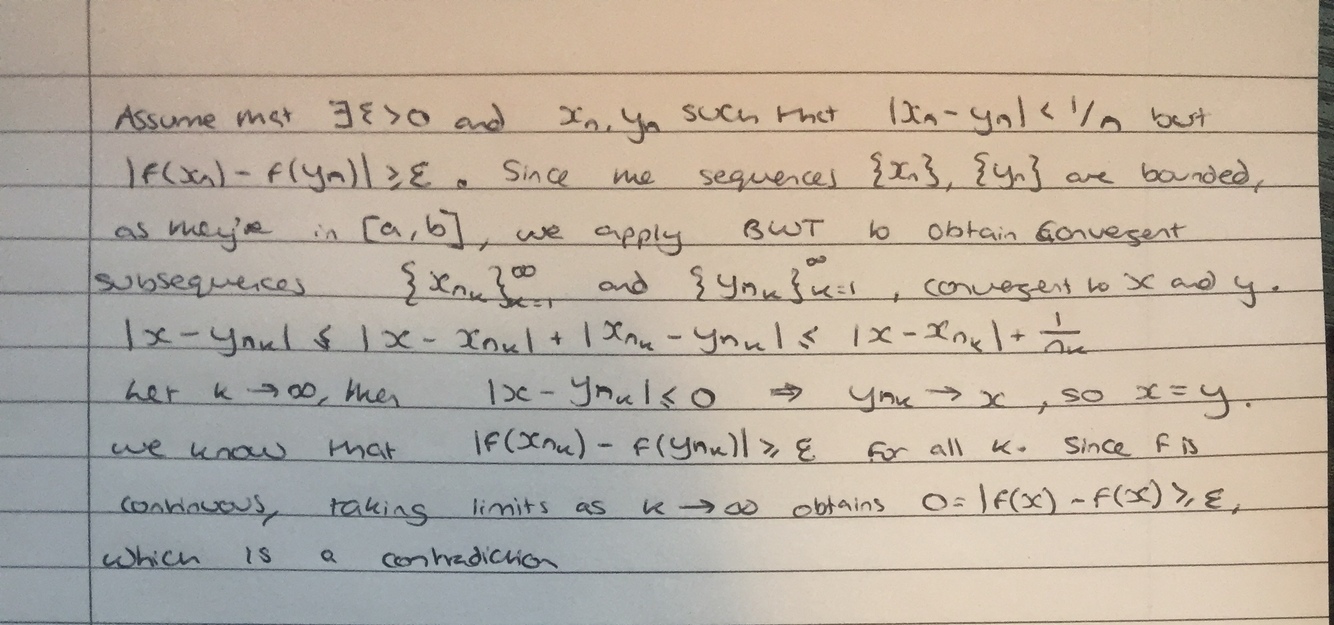 Assume that ∃ε>0 and xₙ, yₙ such that |xₙ - yₙ| < 1/n but
|f(xₙ) - f(yₙ)| ≥ ε. Since the sequences {xₙ}, {yₙ} are bounded,
as they're in [a, b], we apply BWT to obtain convegent
subsequences {x_{n_k}}_{k=1}^∞ and {y_{n_k}}_{k=1}^∞, convegent to x and y.
|x - y_{n_k}| ≤ |x - x_{n_k}| + |x_{n_k} - y_{n_k}| ≤ |x - x_{n_k}| + 1/n_k
Let k → ∞, then |x - y_{n_k}| ≤ 0 ⇒ y_{n_k} → x, so x = y.
we know that |f(x_{n_k}) - f(y_{n_k})| ≥ ε for all k. Since f is
continuous, taking limits as k → ∞ obtains 0 = |f(x) - f(x) ≥ ε,
which is a contradiction